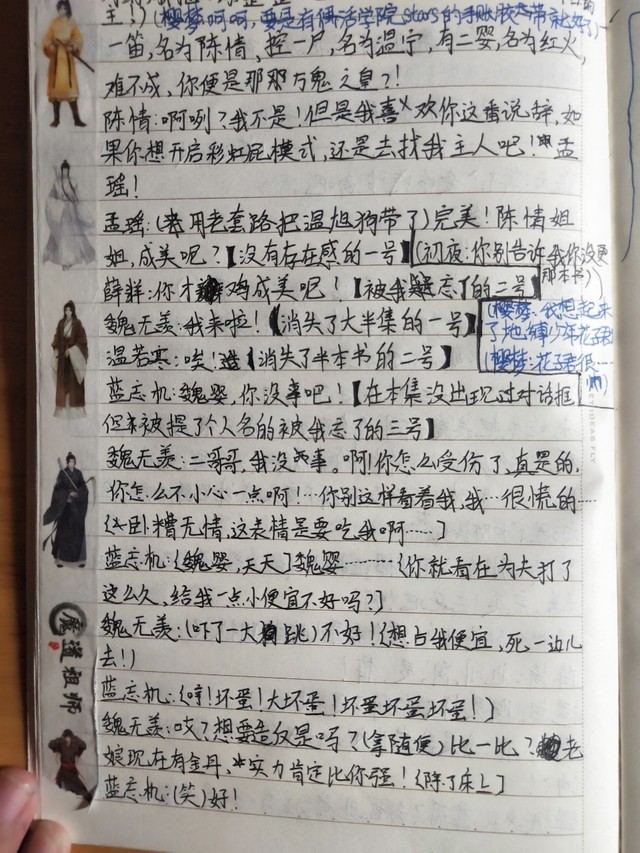 主！）（樱梦：呵呵，要是有偶活学院stars的手账胶带就好）
一笛，名为陈情，控一尸，名为温宁，有二婴，名为红火，
难不成，你便是那那万鬼之皇？！
陈情：啊咧？我不是！但是我喜欢你这番说辞，如
果你想开启彩虹屁模式，还是去找我主人吧！孟
瑶！
孟瑶：（用老套路把温旭狗带了）完美！陈情姐
姐，成美呢？【没有存在感的一号】（初夜：你别告诉我你没更
那本书）
薛洋：你才鸡成美呢！【被我忘了的二号】
（樱梦：我想起来
魏无羡：我来啦！【消失了大半集的一号】
了地缚少年花子君
温若寒：唉！【消失了半本书的二号】
（樱梦：花子君很……
蓝忘机：魏婴，你没事吧！【在本集没出现过对话框
但被提了个人名的被我忘了的三号】
魏无羡：二哥哥，我没事。啊！你怎么受伤了，真是的，
你怎么不小心一点啊！…你别这样看着我，我…很慌的……
（卧糟无情，这表情是要吃我啊……）
蓝忘机：（魏婴，天天）魏婴………（你就看在为夫打了
这么久，给我一点小便宜不好吗？）
魏无羡：（吓了一大跳）不好！（想占我便宜，死一边儿
去！）
蓝忘机：（哼！坏蛋！大坏蛋！坏蛋坏蛋坏蛋！）
魏无羡：哎？想要造反是吗？（拿随便）比一比？老
娘现在有金丹，实力肯定比你强！（除了床上）
蓝忘机：（笑）好！
魔道祖师